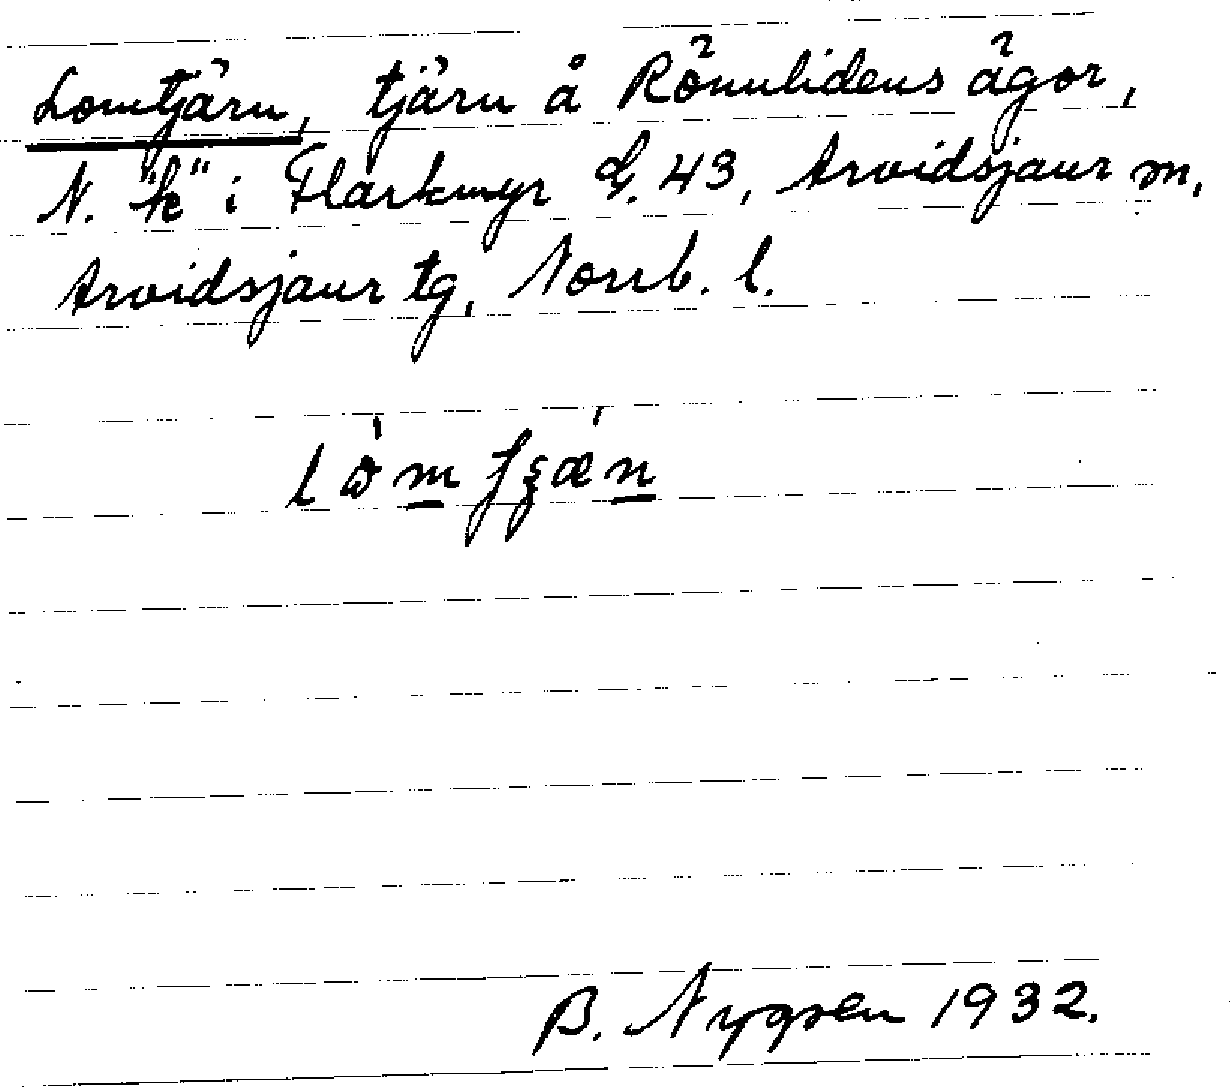 Lomtjärn, tjärn å Rönnlidens ägor,
N. "k" i Flarkmyr G. 43, Arvidsjaur sn,
Arvidsjaur tg, Norrb. l.
B. Nygren 1932.